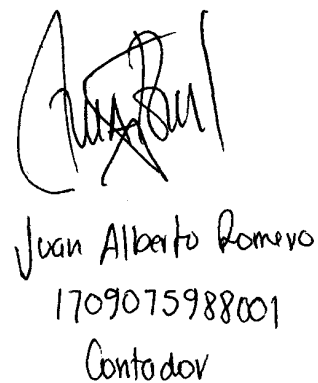 Juan Alberto Romero
1709075988001
Contador